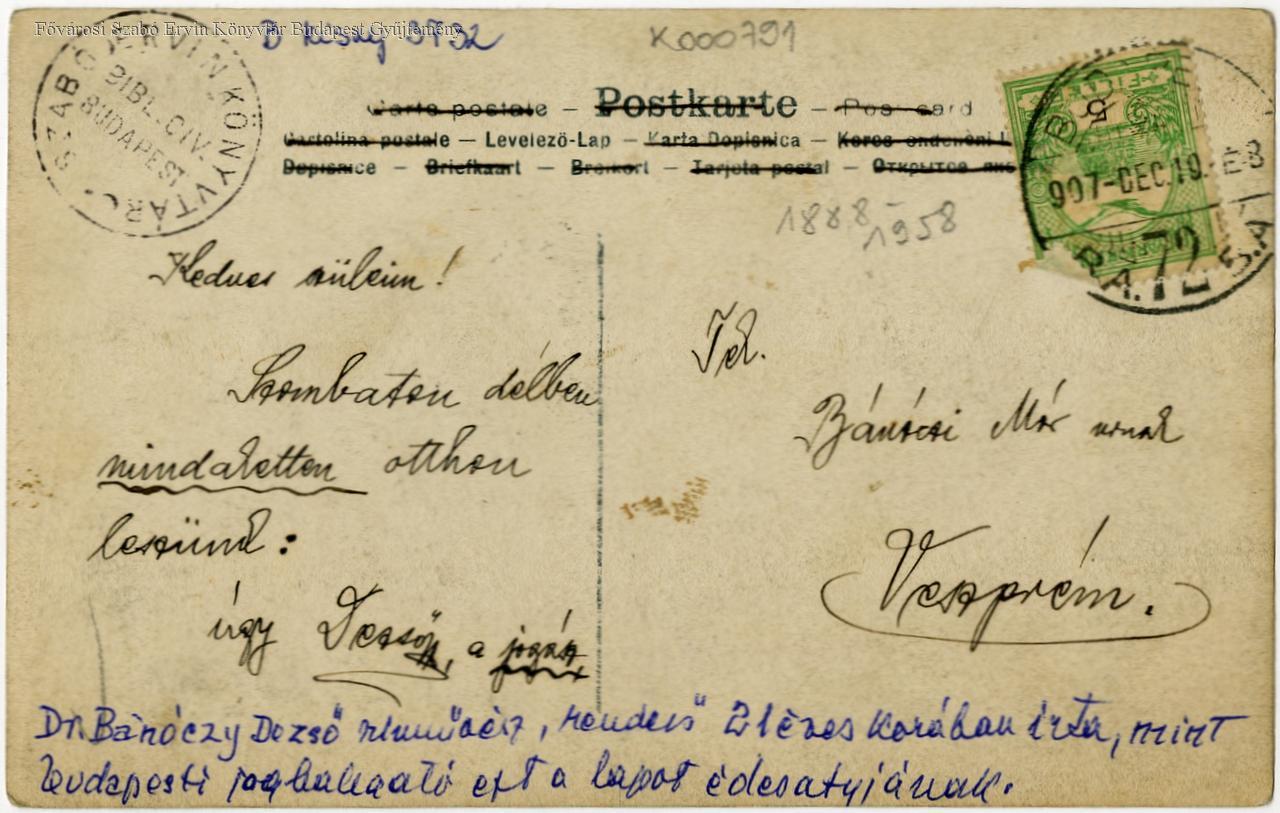 Fővárosi Szabó Ervin Könyvtár Budapest Gyűjtemény
K000791
SZABÓ ERVIN KÖNYVTÁR
BIBL. CIV.
BUDAPEST
Carte postale – Postkarte – Post card
Cartolina postale – Levelező-Lap – Karta Dopisnica – Keres
Dopisnice – Briefkaart – Brefkort – Tarjeta postal – Открытое
FILLÉR
5
907-DEC.19.
72
1888-1958
Kedves szüleim!
Szombaton délben
mindaketten otthon
leszünk:
úgy Dezső, a jogász
Tek.
Bánóczi Mór urnak
Veszprém.
Dr. Bánóczy Dezső filmművész, rendező 21 éves korában írta, mint
budapesti joghallgató ezt a lapot édesatyjának.